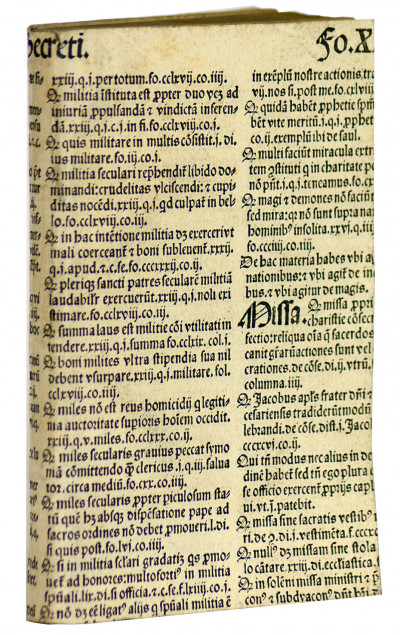 Decreti.
Fo.X
xxiij.q.j.per totum.fo.cclxvij.co.iiij.
Qꝫ militia īstituta est ꝓpter duo vcꝫ ad
iniuriā ꝓpulsandā ⁊ vindictā inferen-
dā.xxiij.q.j.c.j.in fi.fo.cclxvij.co.iij.
Qꝫ quis militare in multis cōsistit.j.di.
ius militare.fo.iij.co.j.
Qꝫ militia seculari rephēndiť libido do-
minandi:crudelitas vlciscendi: ⁊ cupi-
ditas nocēdi.xxiij.q.j.qd culpať in bel-
lo.fo.cclxviij.co.ij.
Qꝫ in hac intētione militia dꝫ exerceri vt
mali coerceanť ⁊ boni subleuenť.xxiij.
q.j.apud.⁊.c.se.fo.cccxxxij.co.ij.
Qꝫ pleriqꝫ sancti patres seculare militiā
laudabiliť exercuerūt.xxiij.q.j.noli exi
stimare.fo.cclxvij.co.ij.
Qꝫ summa laus est militie cōi vtilitati in
tendere.xxiij.q.j.summa fo.cclxix.col.j.
Qꝫ boni milites vltra stipendia sua nil
debent vsurpare.xxiij.q.j.militare.fol.
cclxviij.co.iij.
Qꝫ miles nō est reus homicidij q̇ legiti-
ma auctoritate supioris hoīem occidit.
xxiij.q.v.miles.fo.cclxxx.co.ij.
Qꝫ miles secularis grauius peccat symo
niā cōmittendo q̄ clericus.j.q.iij.salua
tor.circa mediū.fo.cxx.co.iij.
Qꝫ miles secularis ꝓpter piculosum sta-
tū quē hꝫ absqꝫ dispēsatione pape ad
sacros ordines nō debet ꝓmoueri.l.di.
si quis post.fo.lvj.co.iij.
Qꝫ si in militia sclari gradatiꝫ qs ꝓmo-
uet ad honores:multofortiꝰ in militia
spūali.lix.di.si officia.⁊.c.se.fo.lxiij.co.j.
Qꝫ nō dꝫ eē ligatꝰ alijs q̇ spūali militia ē
in exēplū nostre actionis.tra
vij.nos si.post me.fo.cxlviij
Qꝫ quidā habēt ꝓphetie spm̄
bēt vite meritū.j.q.j.ꝓphet
co.ij.exemplū ibi de saul.
Qꝫ multi faciūt miracula extr
tem ꝯstituti q̇ in charitate pe
nō pn̄t.j.q.j.teneamus.fo.cx
Qꝫ magi ⁊ demones nō faciūt
sed mira:q̇ nō sunt supra na
hominibꝰ insolita.xxvj.q.iij
fo.ccciij.co.iij.
De hac materia habes vbi ag
nationibus:⁊ vbi agiť de in
bus.⁊ vbi agitur de magis.
Missa. Qꝫ missa ꝓpri
charistie cōsec
fectio:reliqua oīa q̇ sacerdos
canit gr̄aꝝ actiones sunt vel
crationes.de cōse.di.ij.vtrū
columna.iiij.
Qꝫ Jacobus apl's frater dn̄i ⁊
cesariensis tradiderūt modū
lebrandi.de cōse.dist.j.Jacob
ccccxvj.co.ij.
Qui tn̄ modus nec alius in de
dinē habeť sed tn̄ ego plura
se officio exercenť ꝓprijs capl
ui.vt.j.patebit.
Qꝫ missa sine sacratis vestibꝰ
ri.de ꝯ.di.j.vestimēta.f.cccc
Qꝫ nullꝰ dꝫ missam sine stola
lo cātare.xxiij.di.ecclesiastica.
Qꝫ in solēni missa ministri ⁊ p
conꝰ ⁊ subdyaconꝰ